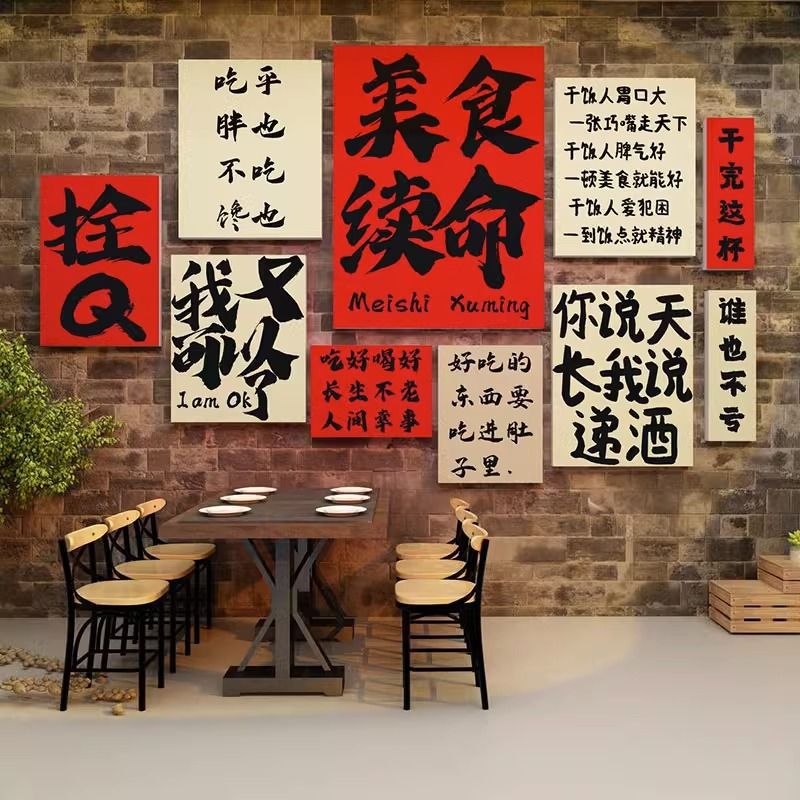 拴
Q
吃乎
胖也
不吃
馋也
美食
续命
Meishi Xuming
干饭人胃口大
一张巧嘴走天下
干饭人脾气好
一顿美食就能好
干饭人爱犯困
一到饭点就精神
干完这杯
我又
可以
了
I am Ok
吃好喝好
长生不老
人间幸事
好吃的
东西要
吃进肚
子里.
你说天
长我说
递酒
谁也不亏